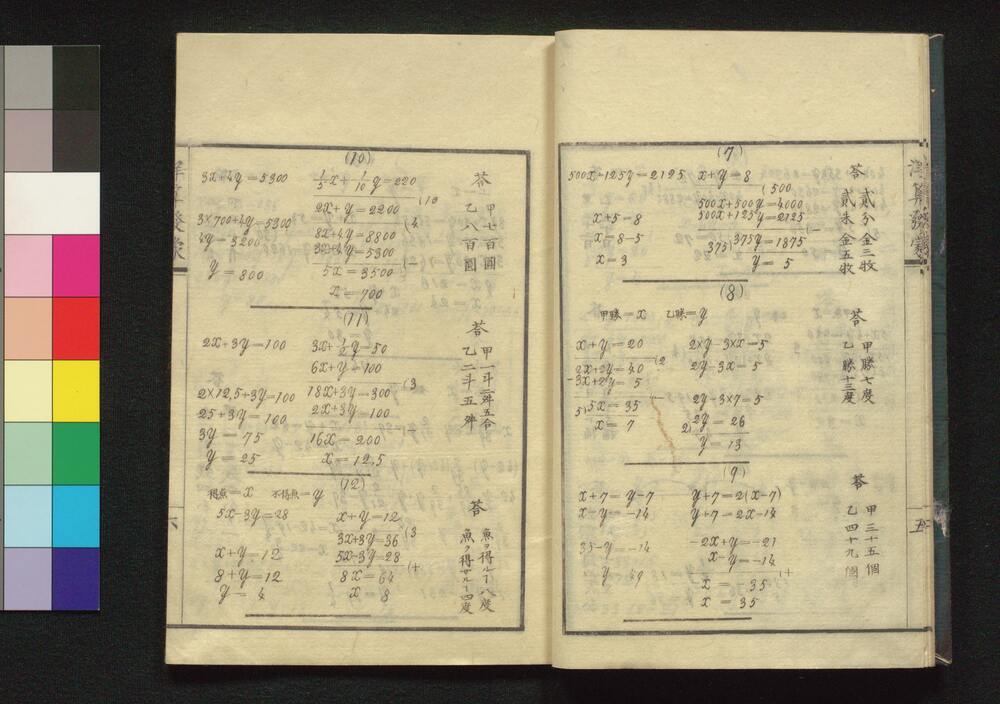 (7)
答 貳分金三枚
貳朱金五枚
500x+125y=2125 x+y=8
(500
500x+500y=4000
500x+125y=2125
(-
375)375y=1875
y=5
x+5=8
x=8-5
x=3
(8)
答 甲勝七度
乙勝十三度
甲勝=x 乙勝=y
x+y=20 2×y-3×x=5
(2
2x+2y=40 2y-3x=5
-3x+2y=5
(-
5)5x=35 2y-3×7=5
x=7 2)2y=26
y=13
(9)
答 甲三十五個
乙四十九個
x+7=y-7 y+7=2(x-7)
x-y=-14 y+7=2x-14
-2x+y=-21
x-y=-14
(+
35-y=-14
y=49
-x=-35
x=35
五
(10)
答 甲七百圓
乙八百圓
3x+4y=5300 1/5x+1/10y=220
(10
2x+y=2200
(4
3×700+4y=5300 8x+4y=8800
4y=3200 3x+4y=5300
(-
y=800 5x=3500
x=700
(11)
答 甲一斗二舛五合
乙二斗五舛
2x+3y=100 3x+1/2y=50
6x+y=100
(3
2×12,5+3y=100 18x+3y=300
25+3y=100 2x+3y=100
(-
3y=75 16x=200
y=25 x=12,5
(12)
答 魚ヲ得ルヿ八度
魚ヲ得サルヿ四度
得魚=x 不得魚=y
5x-3y=28 x+y=12
(3
3x+3y=36
5x-3y=28
(+
x+y=12 8x=64
8+y=12 x=8
y=4
六